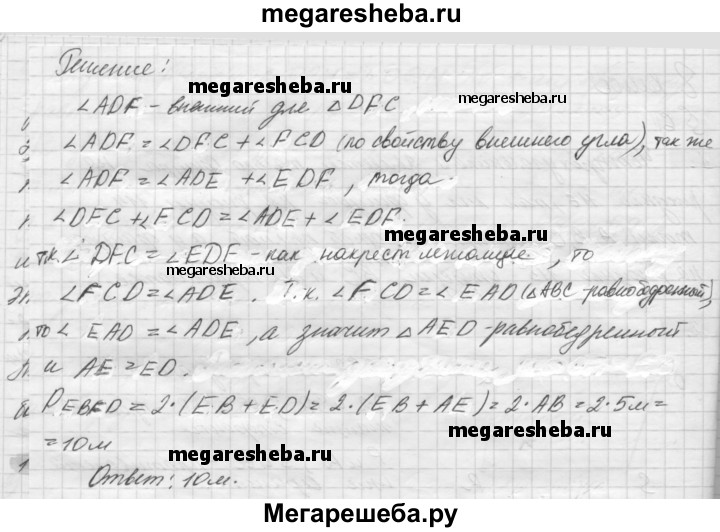 megaresheba.ru
Решение:
megaresheba.ru
megaresheba.ru
∠ADF - внешний для △DFC
∠ADF = ∠DFC + ∠FCD (по свойству внешнего угла), так же
∠ADF = ∠ADE + ∠EDF, тогда
∠DFC + ∠FCD = ∠ADE + ∠EDF.
т.к. ∠DFC = ∠EDF - как накрест лежащие, то
megaresheba.ru
megaresheba.ru
∠FCD = ∠ADE. Т.к. ∠FCD = ∠EAD (△ABC - равнобедренный),
то ∠EAD = ∠ADE, а значит △AED - равнобедренный
и AE = ED.
P EBFD = 2·(EB + ED) = 2·(EB + AE) = 2·AB = 2·5м =
= 10м
megaresheba.ru
megaresheba.ru
Ответ: 10м.
Мегарешеба.ру